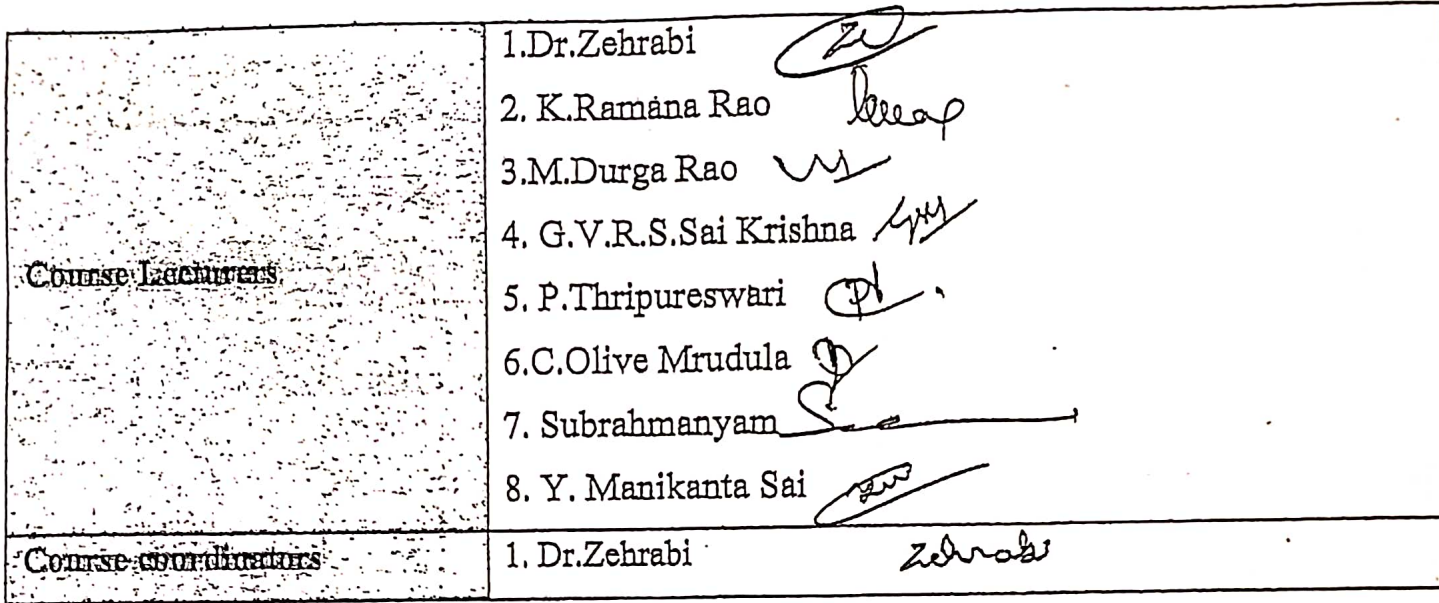 1.Dr.Zehrabi
2. K.Ramana Rao
3.M.Durga Rao
4. G.V.R.S.Sai Krishna
Course Lecturers
5. P.Thripureswari
6.C.Olive Mrudula
7. Subrahmanyam
8. Y. Manikanta Sai
Course coordinators
1. Dr.Zehrabi Zehrabi